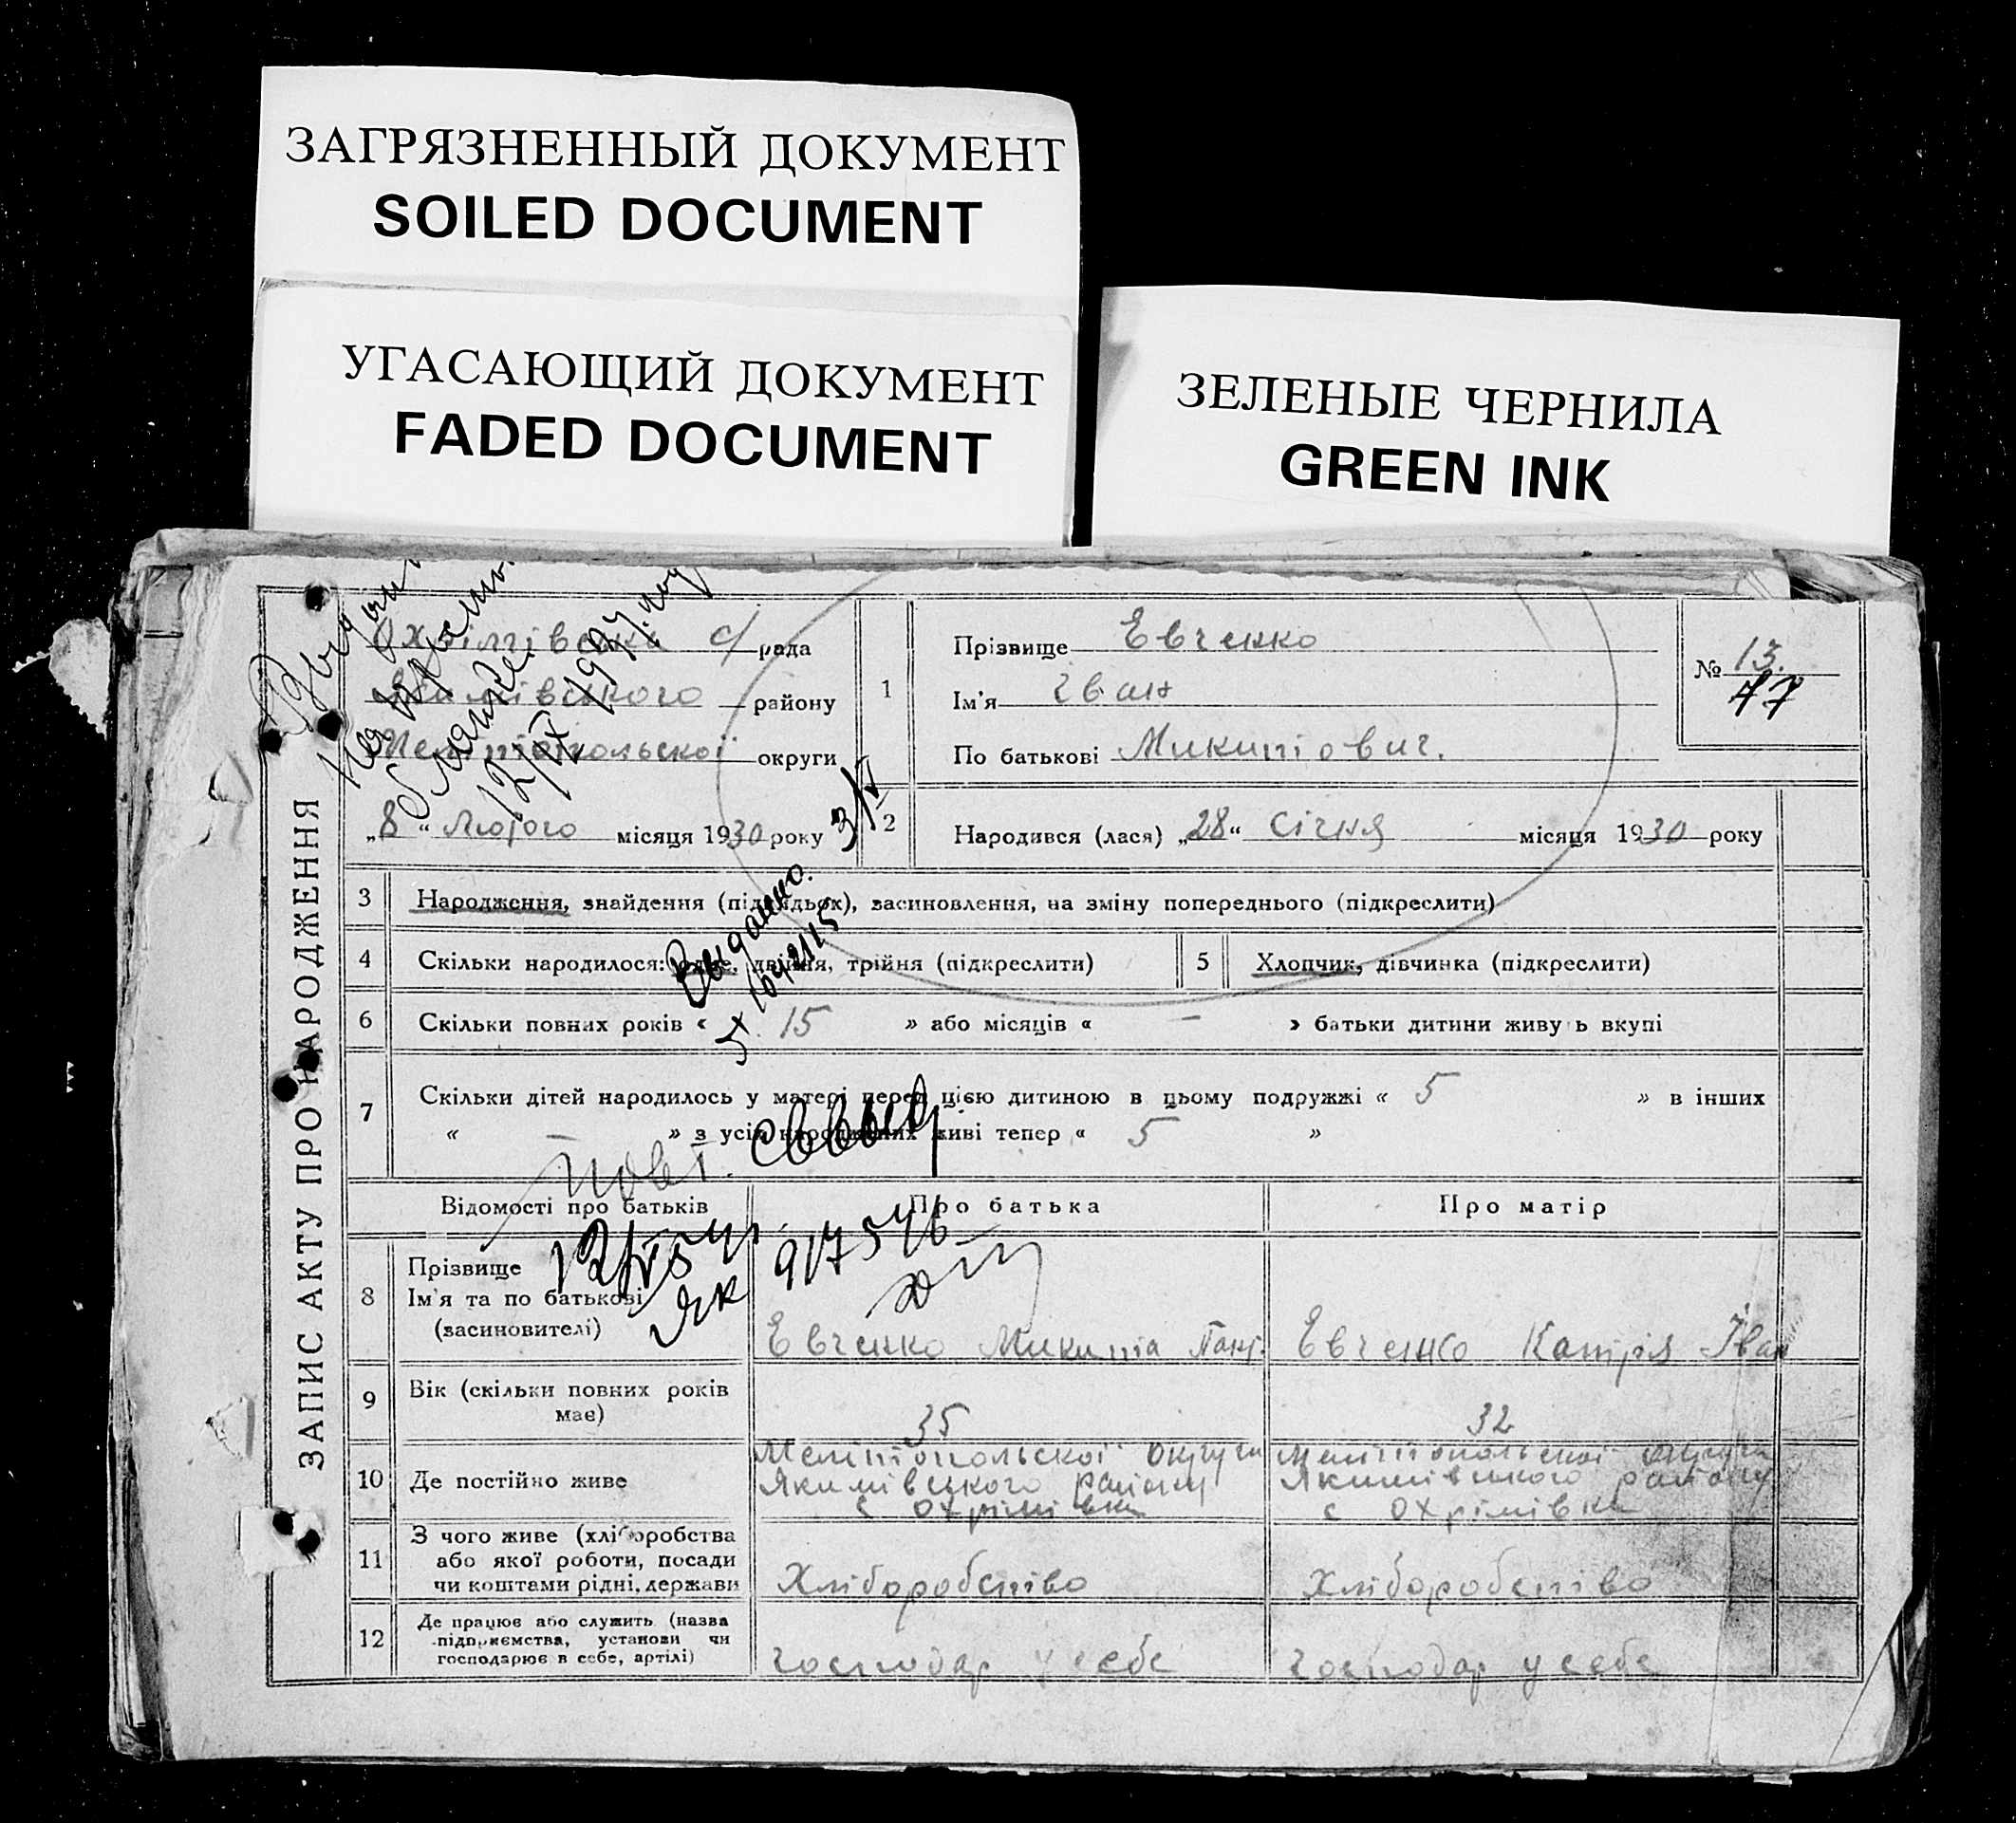 ЗАГРЯЗНЕННЫЙ ДОКУМЕНТ
SOILED DOCUMENT
УГАСАЮЩИЙ ДОКУМЕНТ
FADED DOCUMENT
ЗЕЛЕНЫЕ ЧЕРНИЛА
GREEN INK
ЗАПИС АКТУ ПРО НАРОДЖЕННЯ
с/рада
району
округи
„8“ Лютого місяця 1930 року
12/IX 1947 году
1
Прізвище Евченко
Ім'я Іван
По батькові Микитович.
№ 13.
47
2
Народився (лася) „28“ Січня місяця 1930 року
3 Народження, знайдення (підкидьок), засиновлення, на зміну попереднього (підкреслити)
4 Скільки народилося: одне, двійня, трійня (підкреслити)
5 Хлопчик, дівчинка (підкреслити)
Выдано.
6 Скільки повних років « 15 » або місяців « — » батьки дитини живуть вкупі
7 Скільки дітей народилось у матері перед цією дитиною в цьому подружжі « 5 » в інших
« — » з усіх народжених живі тепер « 5 »
Відомості про батьків
Про батька
Про матір
917546
8 Прізвище
Ім'я та по батькові
(засиновителі)
Евченко Микита
Евченко Іван
9 Вік (скільки повних років
має)
35
32
10 Де постійно живе
Мелітопольскої округи
Якимівського району
с Охрімівка
Мелітопольскої округи
Якимівского району
с Охрімівка
11 З чого живе (хліборобства
або якої роботи, посади
чи коштами рідні, держави
Хліборобство
Хліборобство
12 Де працює або служить (назва
підприємства, установи чи
господарює в себе, артілі)
Господар у себе
Господар у себе